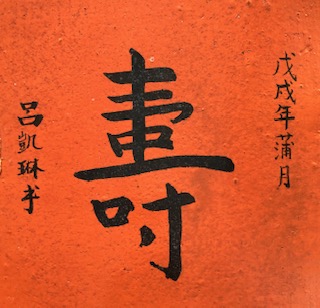 戊戌年蒲月
壽
呂凱琳书